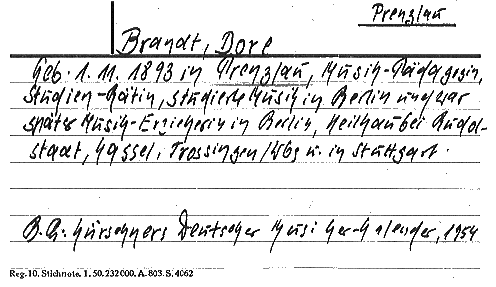 Prenzlau
Brandt, Dore
Geb. 1. 11. 1893 in Prenzlau, Musik-Pädagogin,
Studien-Rätin, studierte Musik in Berlin und war
später Musik-Erzieherin in Berlin, Keilhau bei Rudol-
stadt, Kassel, Trossingen/Wbg u. in Stuttgart.
Kürschners Deutscher Musiker-Kalender, 1954
Reg. 10. Stichnote. 1. 50. 232000. A. 803. S. 4062